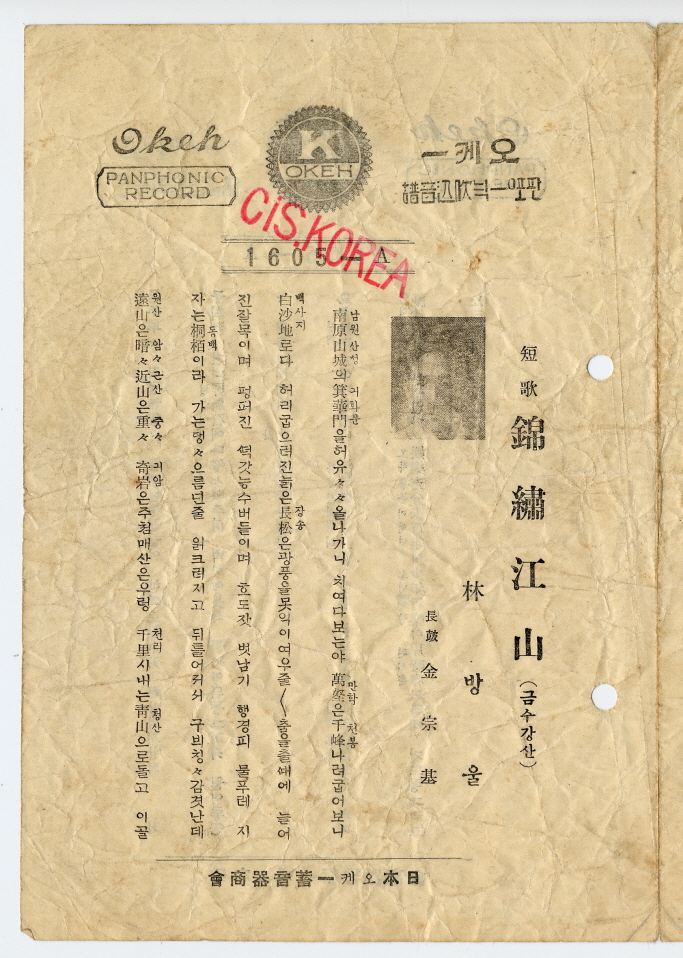 Okeh
PANPHONIC
RECORD
K
OKEH
오케ー
CiS.KOREA
1605—A
短歌
錦繡江山
(금수강산)
林방울
長鼓 金宗基
남원산성 만학 천봉
南原山城의 門을허유々々올나가니 치여다보는야 萬壑은千峰나려굽어보니
백사지 장송
白沙地로다 허리굽으러진늙은長松은광풍을못익이여우줄〱춤을출때에 늘어
진잘목이며 펑퍼진 떡갓능수버들이며 호도잣 벗남기 행경피 물푸레 지
동백
자는桐栢이라 가는댕々으름넌줄 얽크러지고 뒤틀어커서 구븨칭々감겻난데
원산 암々근산 중々 긔암 천리 청산
遠山은暗々近山은重々 奇岩은주춤매산은우렁 千里시내는靑山으로돌고 이꼴
日本오케ー蓄音器商會